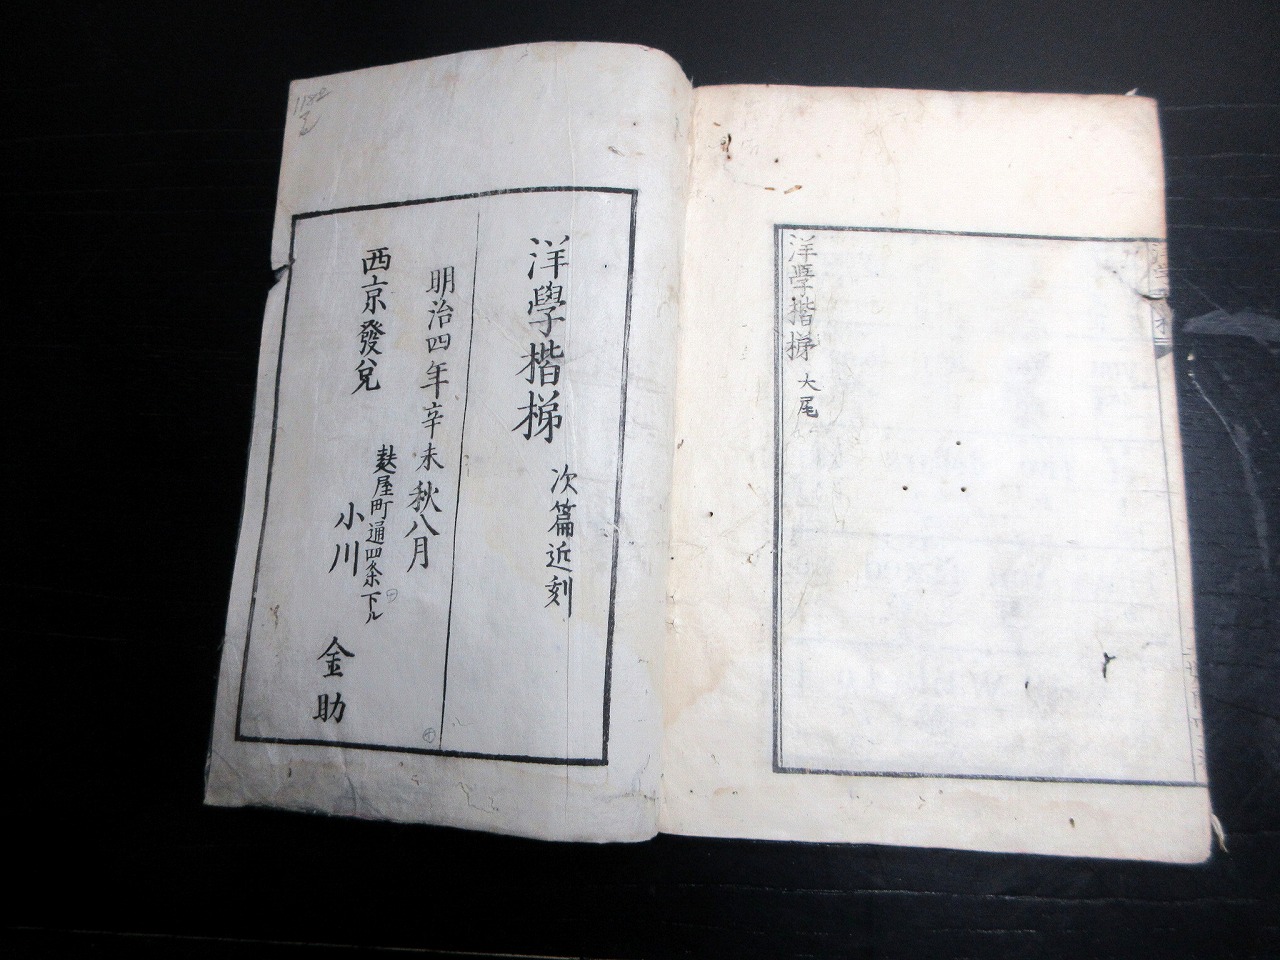 洋學楷梯 大尾
洋學楷梯 次篇近刻
明治四年辛未秋八月
西京發兌
麸屋町通四条下ル
小川金助
1182